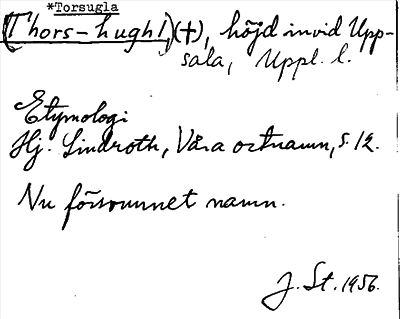 *Torsugla
(Thors-hughl,)(†), höjd invid Upp-
sala, Uppl. l.
Etymologi
Hj. Lindroth, Våra ortnamn, s. 12.
Nu försvunnet namn.
J. St. 1956.